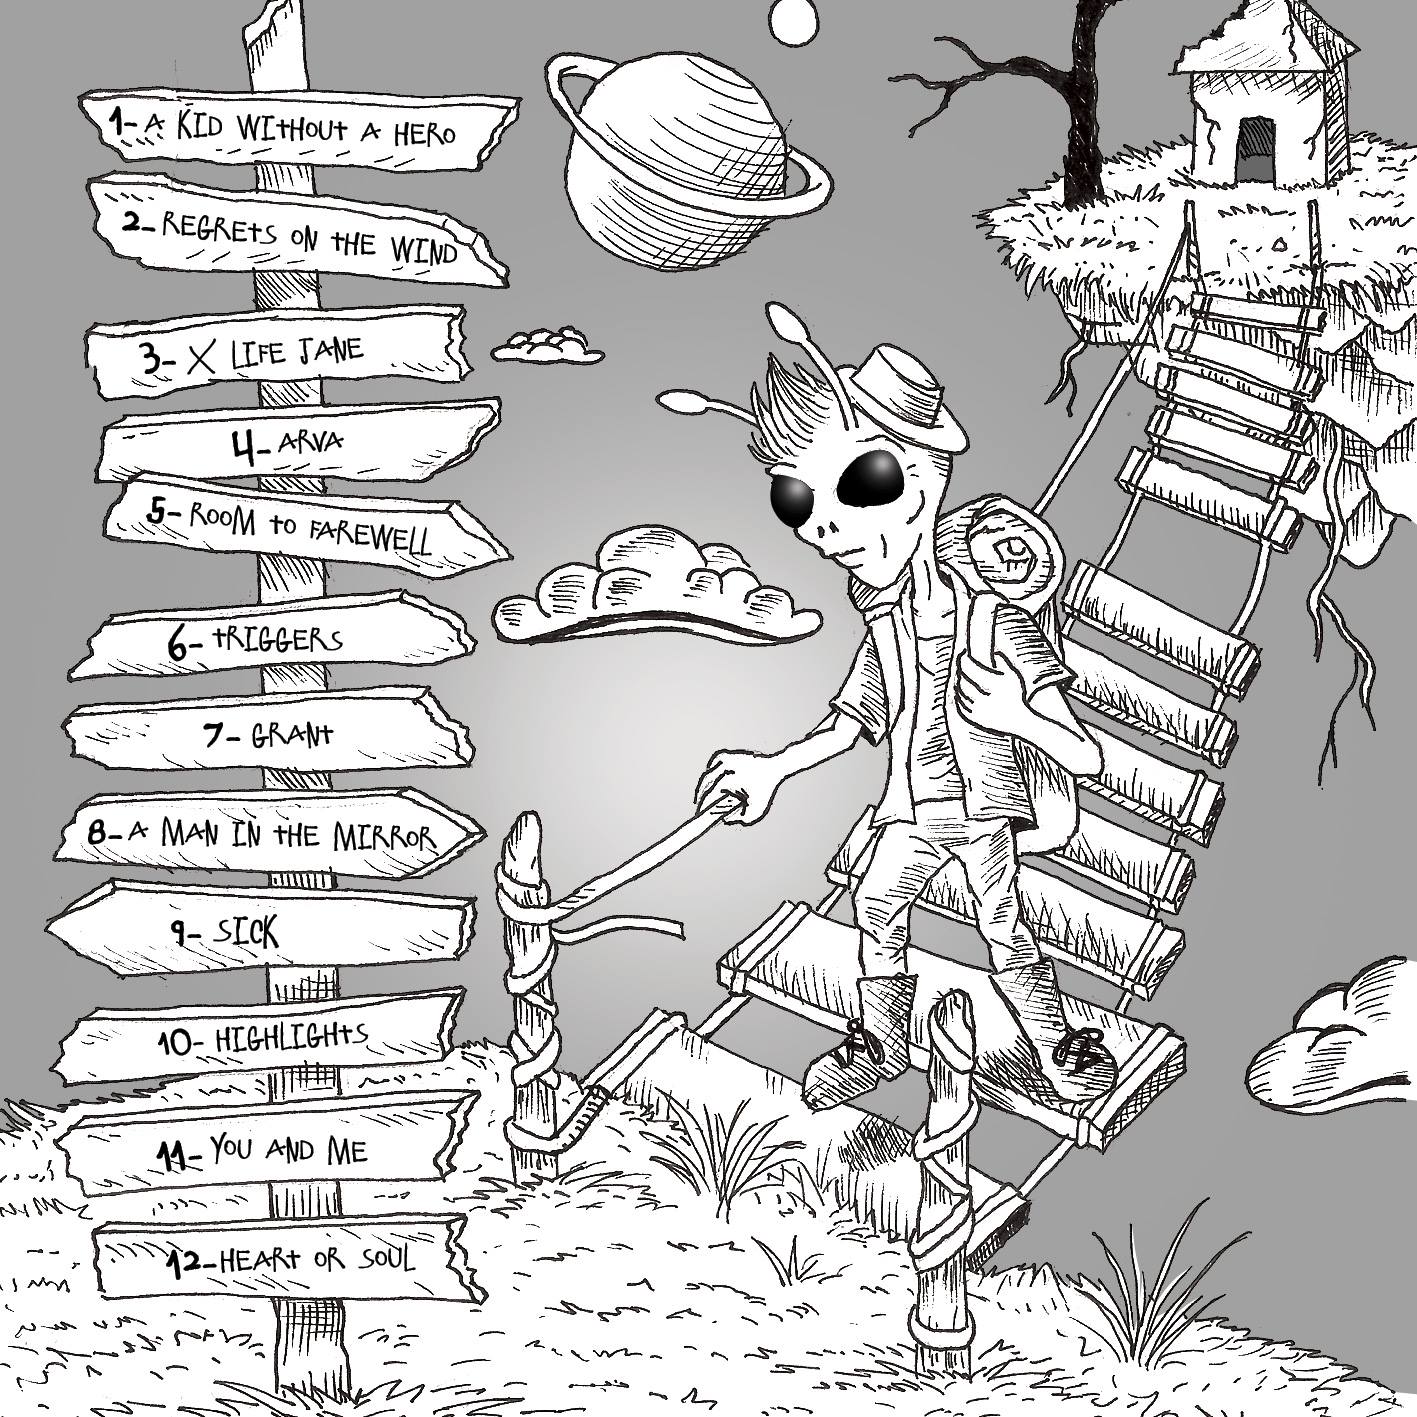 1- A KID WITHOUT A HERO
2- REGRETS ON THE WIND
3- X LIFE JANE
4- ARVA
5- ROOM TO FAREWELL
6- TRIGGERS
7- GRANT
8- A MAN IN THE MIRROR
9- SICK
10- HIGHLIGHTS
11- YOU AND ME
12- HEART OR SOUL